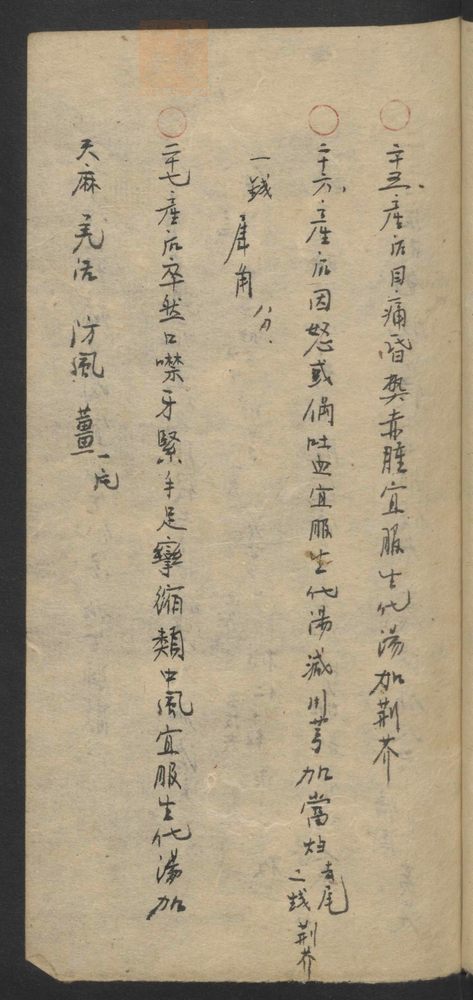 二十五產后目痛昏㷼赤腫宜服生化湯加荊芥
二十六產后因怒或倆吐血宜服生化湯減川芎加當灼去尾二錢荊芥
一錢 犀角八分
二十七產后卒然口噤牙緊手足攣縮類中風宜服生化湯加
天麻 羌活 防風 薑一片